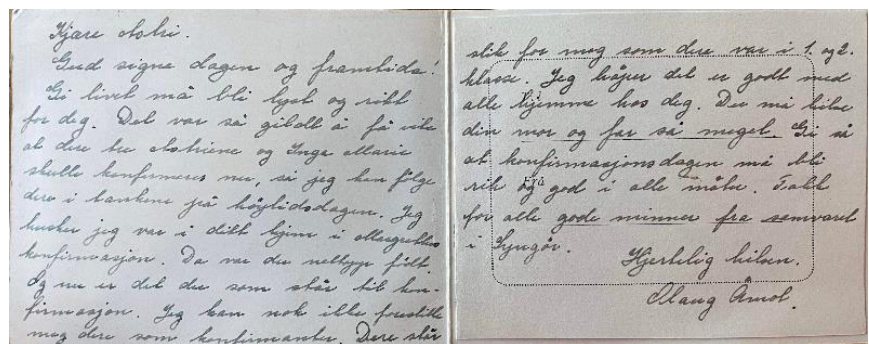 Kjære Astri.
Gud signe dagen og framtida!
Gi livet må bli lyst og rikt
for deg. Det var så gildt å få vite
at dere tre Astriene og Inga Marie
skulle konfirmeres nu, så jeg kan følge
dere i tankene på høytidsdagen. Jeg
husker jeg var i ditt hjem i Margrethes
konfirmasjon. Da var du nettopp født.
Og nu er det du som står til kon-
firmasjon. Jeg kan nok ikke forestille
meg dere som konfirmanter. Dere står
slik for meg som dere var i 1. og 2.
klasse. Jeg håper det er godt med
alle hjemme hos deg. Du må hilse
din mor og far så meget. Gi så
at konfirmasjonsdagen må bli
rik og god i alle måter. Takk
for alle gode minner fra samværet
i Lyngør.
Hjertelig hilsen.
Olaug Åmot.
Fra